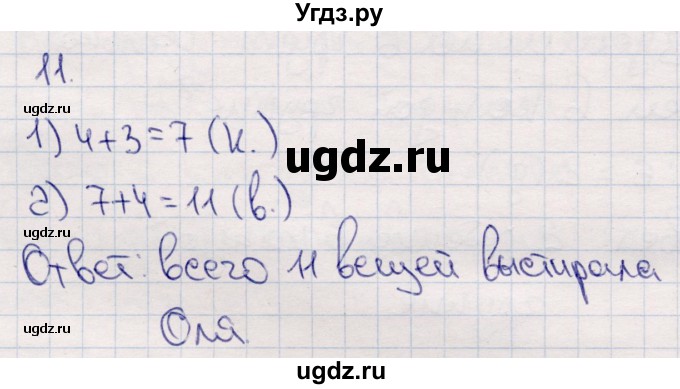 Угдз.ру
11.
ugdz.ru
1) 4+3=7 (к.)
ugdz.ru
ugdz.ru
2) 7+4=11 (в.)
ugdz.ru
Ответ: всего 11 вещей выстирала
ugdz.ru
ugdz.ru
Оля.
ugdz.ru
ugdz.ru